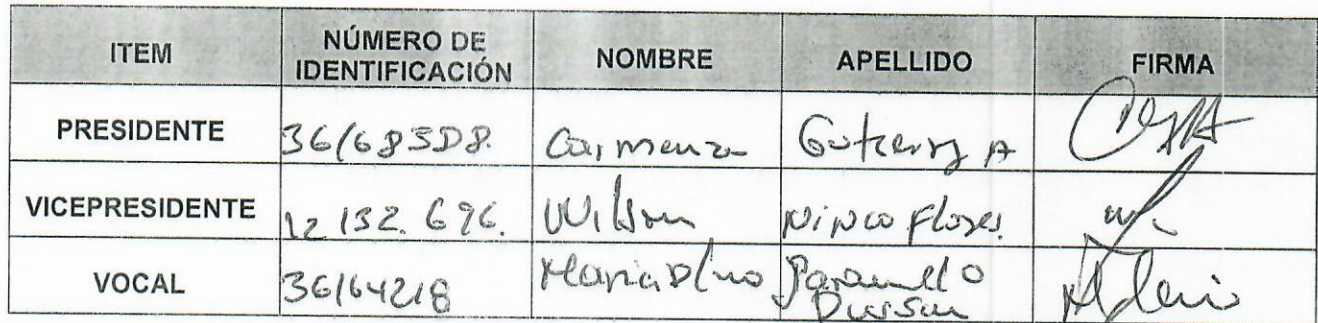 ITEM NÚMERO DE IDENTIFICACIÓN NOMBRE APELLIDO FIRMA
PRESIDENTE Carmenza Gutierrez A
VICEPRESIDENTE 12 132. 696. Wilson Ninco Flores.
VOCAL 36164218 Maria